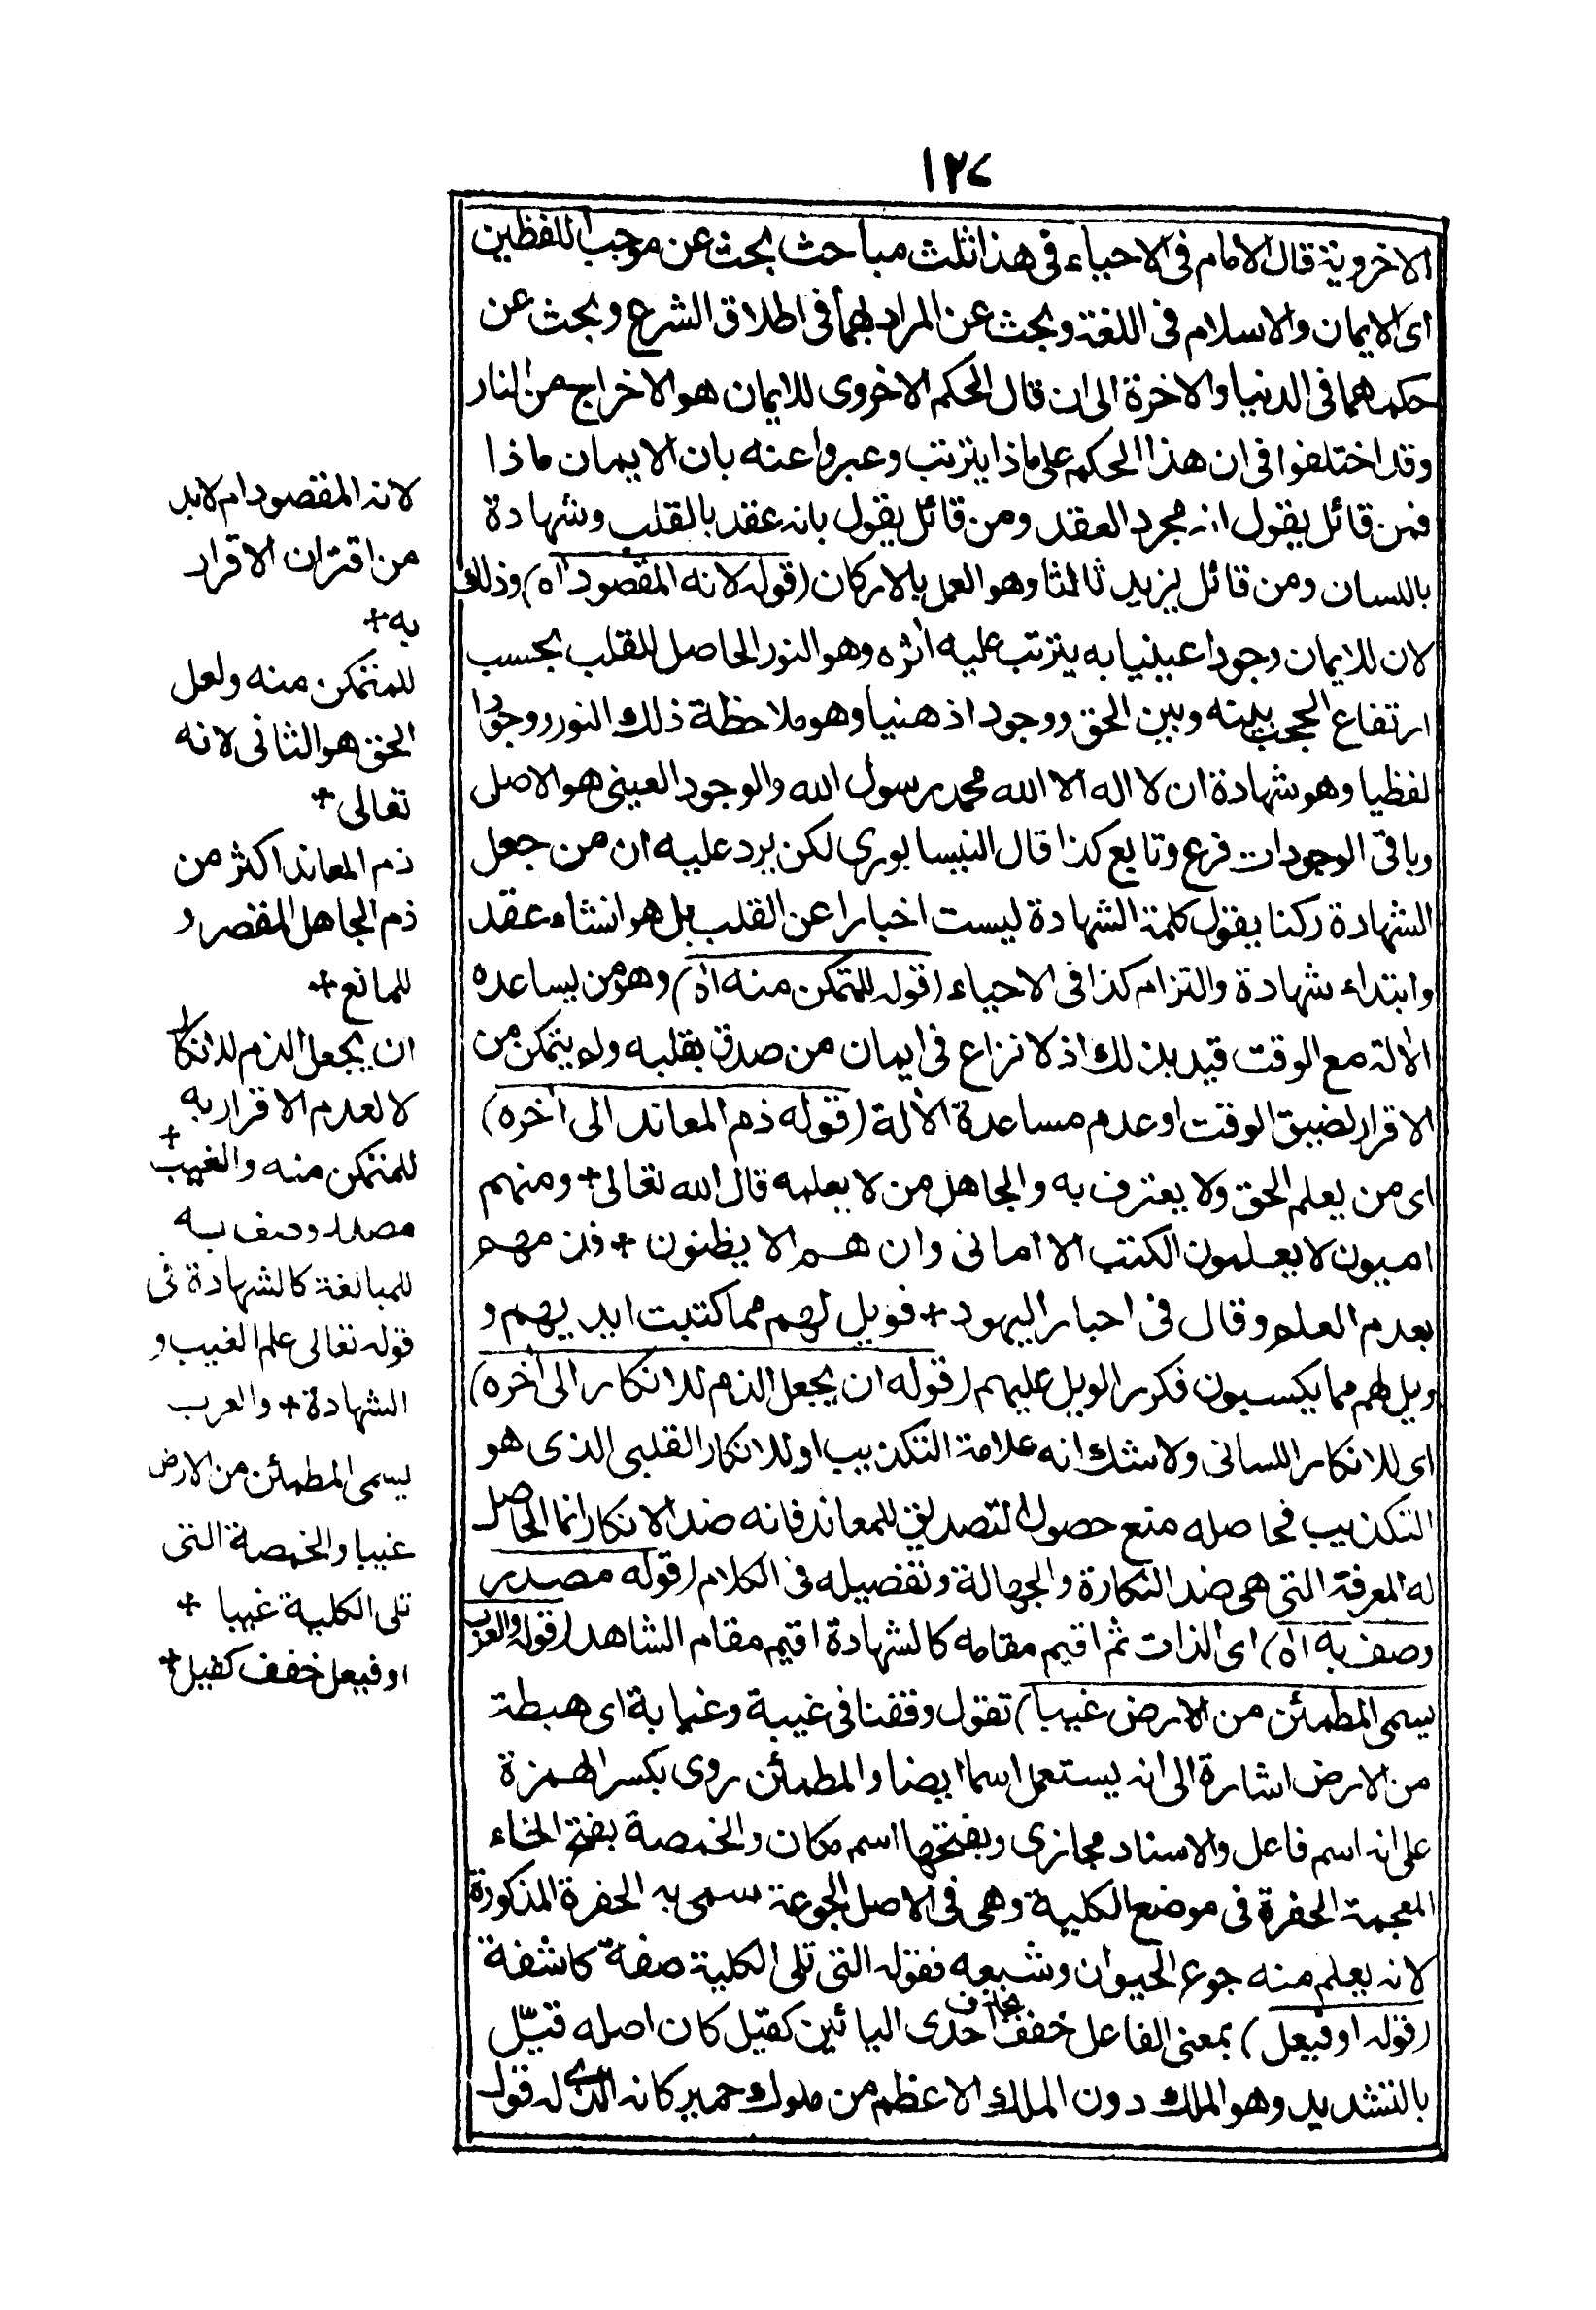 ١٢٧
الاخروية قال الامام فى الاحياء فى هذا ثلث مباحث بحث عن موجب اللفظين
اى الايمان والاسلام فى اللغة وبحث عن المراد بهما فى اطلاق الشرع وبحث عن
حكمهما فى الدنيا والاخرة الى ان قال الحكم الاخروى للايمان هو الاخراج من النار
وقد اختلفوا فى ان هذا الحكم على ماذا يترتب وعبروا عنه بان الايمان ماذا
فمن قائل يقول انه مجرد العقد ومن قائل يقول بانه عقد بالقلب وشهادة
باللسان ومن قائل يزيد ثالثا وهو العمل بالاركان (قوله لانه المقصود اه) وذلك
لان للايمان وجودا عينيا به يترتب عليه اثره وهو النور الحاصل للقلب بحسب
ارتفاع الحجب بينه وبين الحق ووجودا ذهنيا وهو ملاحظة ذلك النور ووجودا
لفظيا وهو شهادة ان لا اله الا الله محمد رسول الله والوجود العينى هو الاصل
وباقى الوجودات فرع وتابع كذا قال النيسابورى لكن يرد عليه ان من جعل
الشهادة ركنا يقول كلمة الشهادة ليست اخبارا عن القلب بل هو انشاء عقد
وابتداء شهادة والتزام كذا فى الاحياء (قوله للمتمكن منه اه) وهو من يساعده
الألة مع الوقت قيد بذلك اذ لا نزاع فى ايمان من صدق بقلبه ولم يتمكن من
الاقرار لضيق الوقت او عدم مساعدة الألة (قوله ذم المعاند الى أخره)
اى من يعلم الحق ولا يعترف به والجاهل من لا يعلمه قال الله تعالى + ومنهم
اميون لا يعلمون الكتب الا امانى وان هم الا يظنون + فذمهم
بعدم العلم وقال فى احبار اليهود + فويل لهم مما كتبت ايديهم و
ويل لهم مما يكسبون فكرر الويل عليهم (قوله ان يجعل الذم للانكار الى أخره)
اى للانكار اللسانى ولا شك انه علامة التكذيب او للانكار القلبى الذى هو
التكذيب فحاصله منع حصول التصديق للمعاند فانه ضد الانكار انما الحاصل
له المعرفة التى هى ضد النكارة والجهالة وتفصيله فى الكلام (قوله مصدر
وصف به اه) اى الذات ثم اقيم مقامه كالشهادة اقيم مقام الشاهد (قوله والعرب
يسمى المطمئن من الارض غيبا) تقول وقفنا فى غيبة وغيابة اى هبطة
من الارض اشارة الى انه يستعمل اسما ايضا والمطمائن روى بكسر الهمزة
على انه اسم فاعل والاسناد مجازى وبفتحها اسم مكان والخمصة بفتح الخاء
المعجمة الحفرة فى موضع الكلية وهى فى الاصل الجوعة سمى به الحفرة المذكورة
لانه يعلم منه جوع الحيوان وشبعه فقوله التى تلى الكلية صفة كاشفة
(قوله او فيعل) بمعنى الفاعل خفف بحذف احدى اليائين كقيل كان اصله قيّل
بالتشديد وهو الملك دون الملك الاعظم من ملوك حمير كانه الذى له قول
لانه المقصود ام لابد
من اقتران الاقرار
به +
للمتمكن منه ولعل
الحق هو الثانى لانه
تعالى +
ذم المعاند اكثر من
ذم الجاهل المقصر و
للمانع +
ان يجعل الذم للانكار
لا لعدم الاقرار به
للمتمكن منه + والغيب
مصدر وصف به
للمبالغة كالشهادة فى
قوله تعالى علم الغيب و
الشهادة + والعرب
يسمى المطمائن من الارض
غيبا والخمصة التى
تلى الكلية غيبا +
او فيعل خفف كقيل +